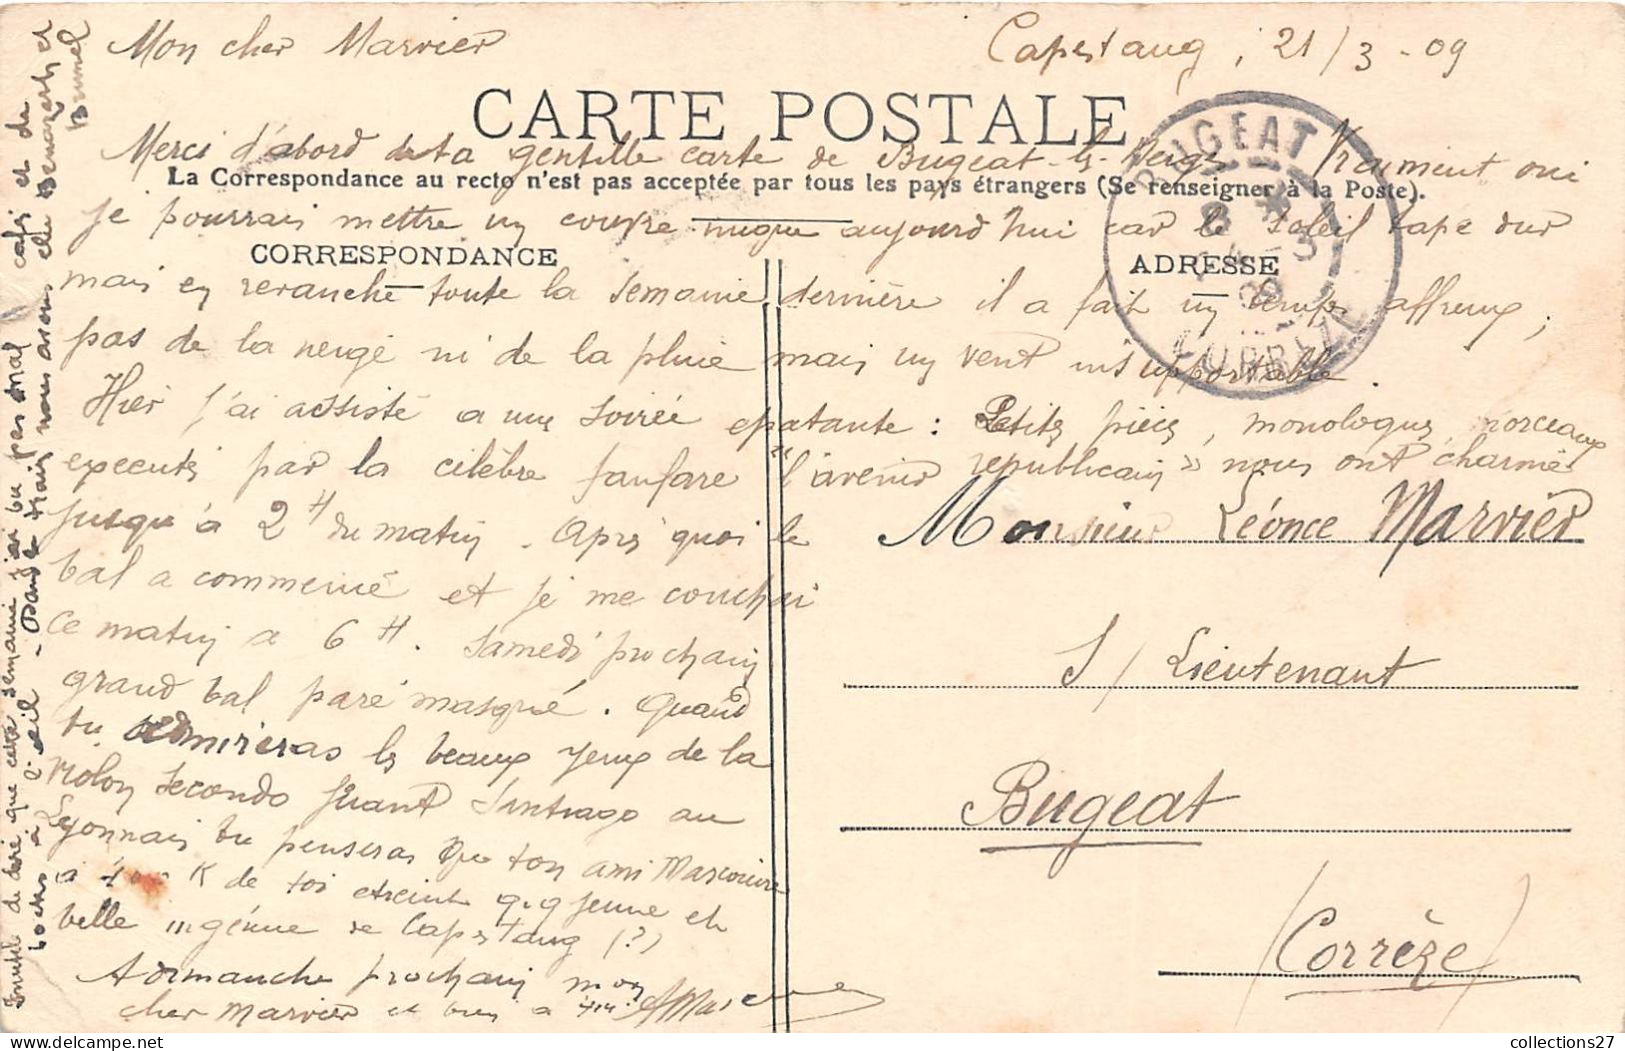 Mon cher Marvier
Capestang, 21/3-09
CARTE POSTALE
Merci d'abord de ta gentille carte de Bugeat-les-Neiges Vraiment oui
La Correspondance au recto n'est pas acceptée par tous les pays étrangers (Se renseigner à la Poste).
je pourrais mettre un couvre nuque aujourd'hui car le soleil tape dur
CORRESPONDANCE
ADRESSE
mais en revanche toute la semaine dernière il a fait un temps affreux;
pas de la neige ni de la pluie mais un vent insupportable.
Hier j'ai assisté a une soirée epatante: Petites pièces, monologues, morceaux
executés par la célèbre fanfare "l'avenir republicain" nous ont charmé
jusqu'à 2H du matin. Après quoi le
bal a commencé et je me couchai
ce matin a 6H. Samedi prochain
grand bal paré masqué. Quand
tu admireras les beaux yeux de la
violon secondo jouant Santiago au
Lyonnais tu penseras que ton ami
a K de toi etreint qq jeune et
belle ingénue de Capestang (?)
A dimanche prochain mon
cher Marvier et bien a toi
Inutile de dire que cette semaine j'ai bu pas mal cafés et de
bocks à l'oeil - Dans le train nous avons elle et
Brunel
Monsieur Léonce Marvier
S/Lieutenant
Bugeat
(Corrèze)
BUGEAT
CORREZE
collections27